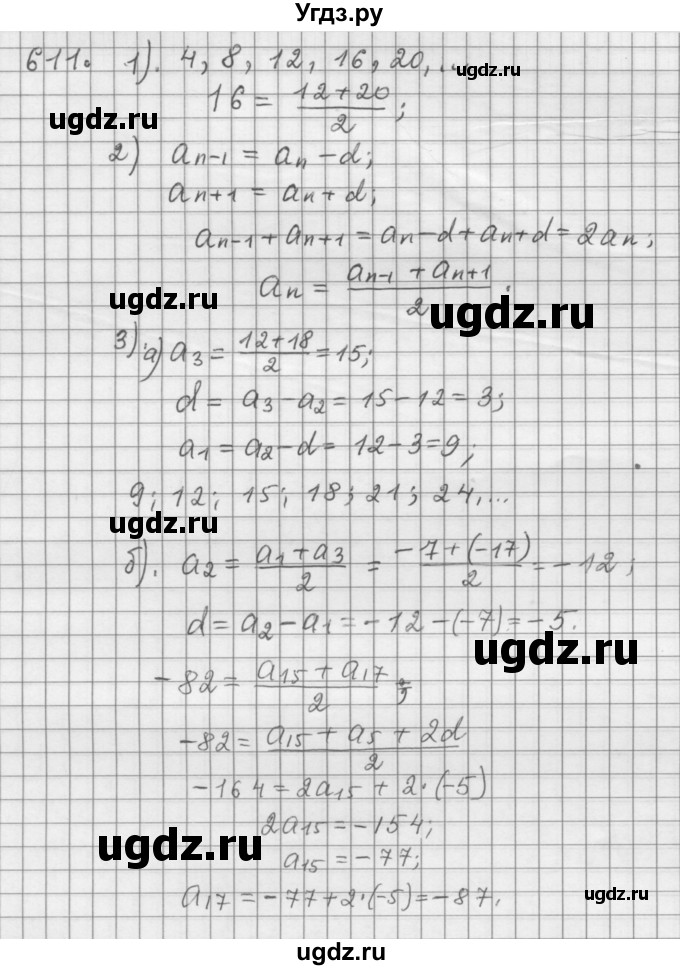 Угдз.ру
611. 1). 4, 8, 12, 16, 20, ...
16 = (12+20)/2;
ugdz.ru
ugdz.ru
2) aₙ₋₁ = aₙ – d;
aₙ₊₁ = aₙ + d;
aₙ₋₁ + aₙ₊₁ = aₙ – d + aₙ + d = 2aₙ;
aₙ = (aₙ₋₁ + aₙ₊₁)/2.
ugdz.ru
ugdz.ru
3) а) a₃ = (12+18)/2 = 15;
d = a₃ – a₂ = 15 – 12 = 3;
a₁ = a₂ – d = 12 – 3 = 9;
9; 12; 15; 18; 21; 24, ...
ugdz.ru
б). a₂ = (a₁ + a₃)/2 = (–7 + (–17))/2 = –12;
d = a₂ – a₁ = –12 – (–7) = –5.
ugdz.ru
–82 = (a₁₅ + a₁₇)/2;
–82 = (a₁₅ + a₅ + 2d)/2
–164 = 2a₁₅ + 2·(–5)
2a₁₅ = –154;
ugdz.ru
a₁₅ = –77;
a₁₇ = –77 + 2·(–5) = –87.
ugdz.ru
ugdz.ru